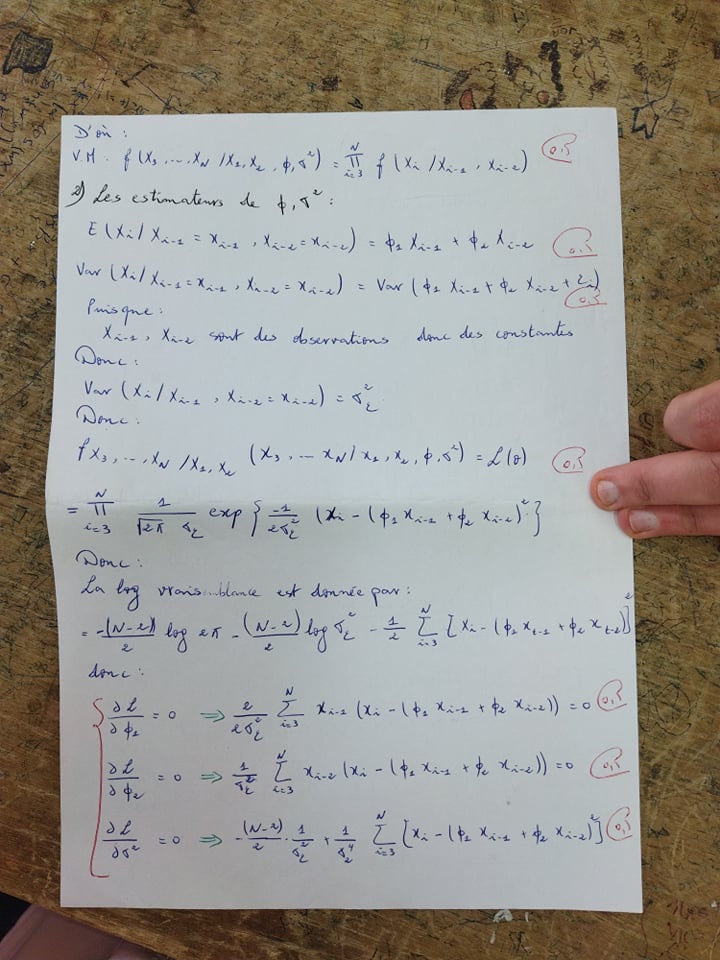 D'où :
V.M. f(X₃, ..., X_N / X₁, X₂, ϕ, σ²) = ∏_{i=3}^{N} f(X_i / X_{i-1}, X_{i-2}) 0,5
2) Les estimateurs de ϕ, σ² :
E(X_i / X_{i-1} = x_{i-1}, X_{i-2} = x_{i-2}) = ϕ₁ X_{i-1} + ϕ₂ X_{i-2} 0,5
Var(X_i / X_{i-1} = x_{i-1}, X_{i-2} = x_{i-2}) = Var(ϕ₁ X_{i-1} + ϕ₂ X_{i-2} + Σ_i) 0,5
Puisque :
X_{i-1}, X_{i-2} sont des observations donc des constantes
Donc :
Var(X_i / X_{i-1}, X_{i-2} = x_{i-2}) = σ_ε²
Donc :
f X₃, ..., X_N / X₁, X₂ (X₃, ... X_N / x₁, x₂, ϕ, σ²) = L(θ) 0,5
= ∏_{i=3}^{N} 1/(√2π σ_ε) exp{ -1/(2σ_ε²) (x_i - (ϕ₁ x_{i-1} + ϕ₂ x_{i-2})² }
Donc :
La log vraisemblance est donnée par :
= -(N-2)/2 log 2π - (N-2)/2 log σ_ε² - 1/2 Σ_{i=3}^{N} [x_i - (ϕ₁ x_{t-1} + ϕ₂ x_{t-2})]²
donc :
∂L/∂ϕ₁ = 0 ⇒ 2/(2σ_ε²) Σ_{i=3}^{N} x_{i-1} (x_i - (ϕ₁ x_{i-1} + ϕ₂ x_{i-2})) = 0 0,5
∂L/∂ϕ₂ = 0 ⇒ 1/σ_ε² Σ_{i=3}^{N} x_{i-2} (x_i - (ϕ₁ x_{i-1} + ϕ₂ x_{i-2})) = 0 0,5
∂L/∂σ² = 0 ⇒ -(N-2)/2 · 1/σ_ε² + 1/σ_ε⁴ Σ_{i=3}^{N} [x_i - (ϕ₁ x_{i-1} + ϕ₂ x_{i-2})²] 0,5